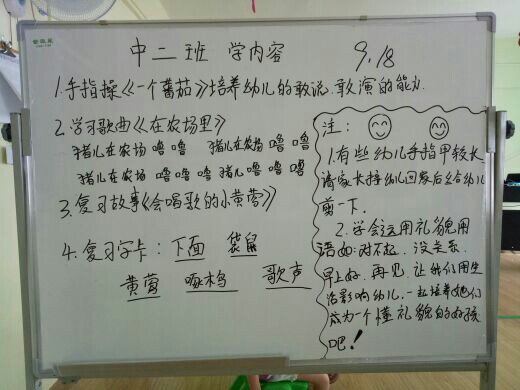 中二班 学内容 9.18
1.手指操《一个蕃茄》培养幼儿的敢说.敢演的能力.
2.学习歌曲《在农场里》
猪儿在农场噜噜 猪儿在农场噜噜
猪儿在农场噜噜噜 猪儿噜噜噜
3.复习故事《会唱歌的小黄莺》
4.复习字卡：下面 袋鼠
黄莺 啄木鸟 歌声
注：
1.有些幼儿手指甲较长
请家长接幼儿回家后给幼儿
剪一下.
2.学会运用礼貌用
语如:对不起.没关系.
早上好.再见.让他们用生
活影响幼儿.一起培养她们
成为一个懂礼貌的好孩
吧！